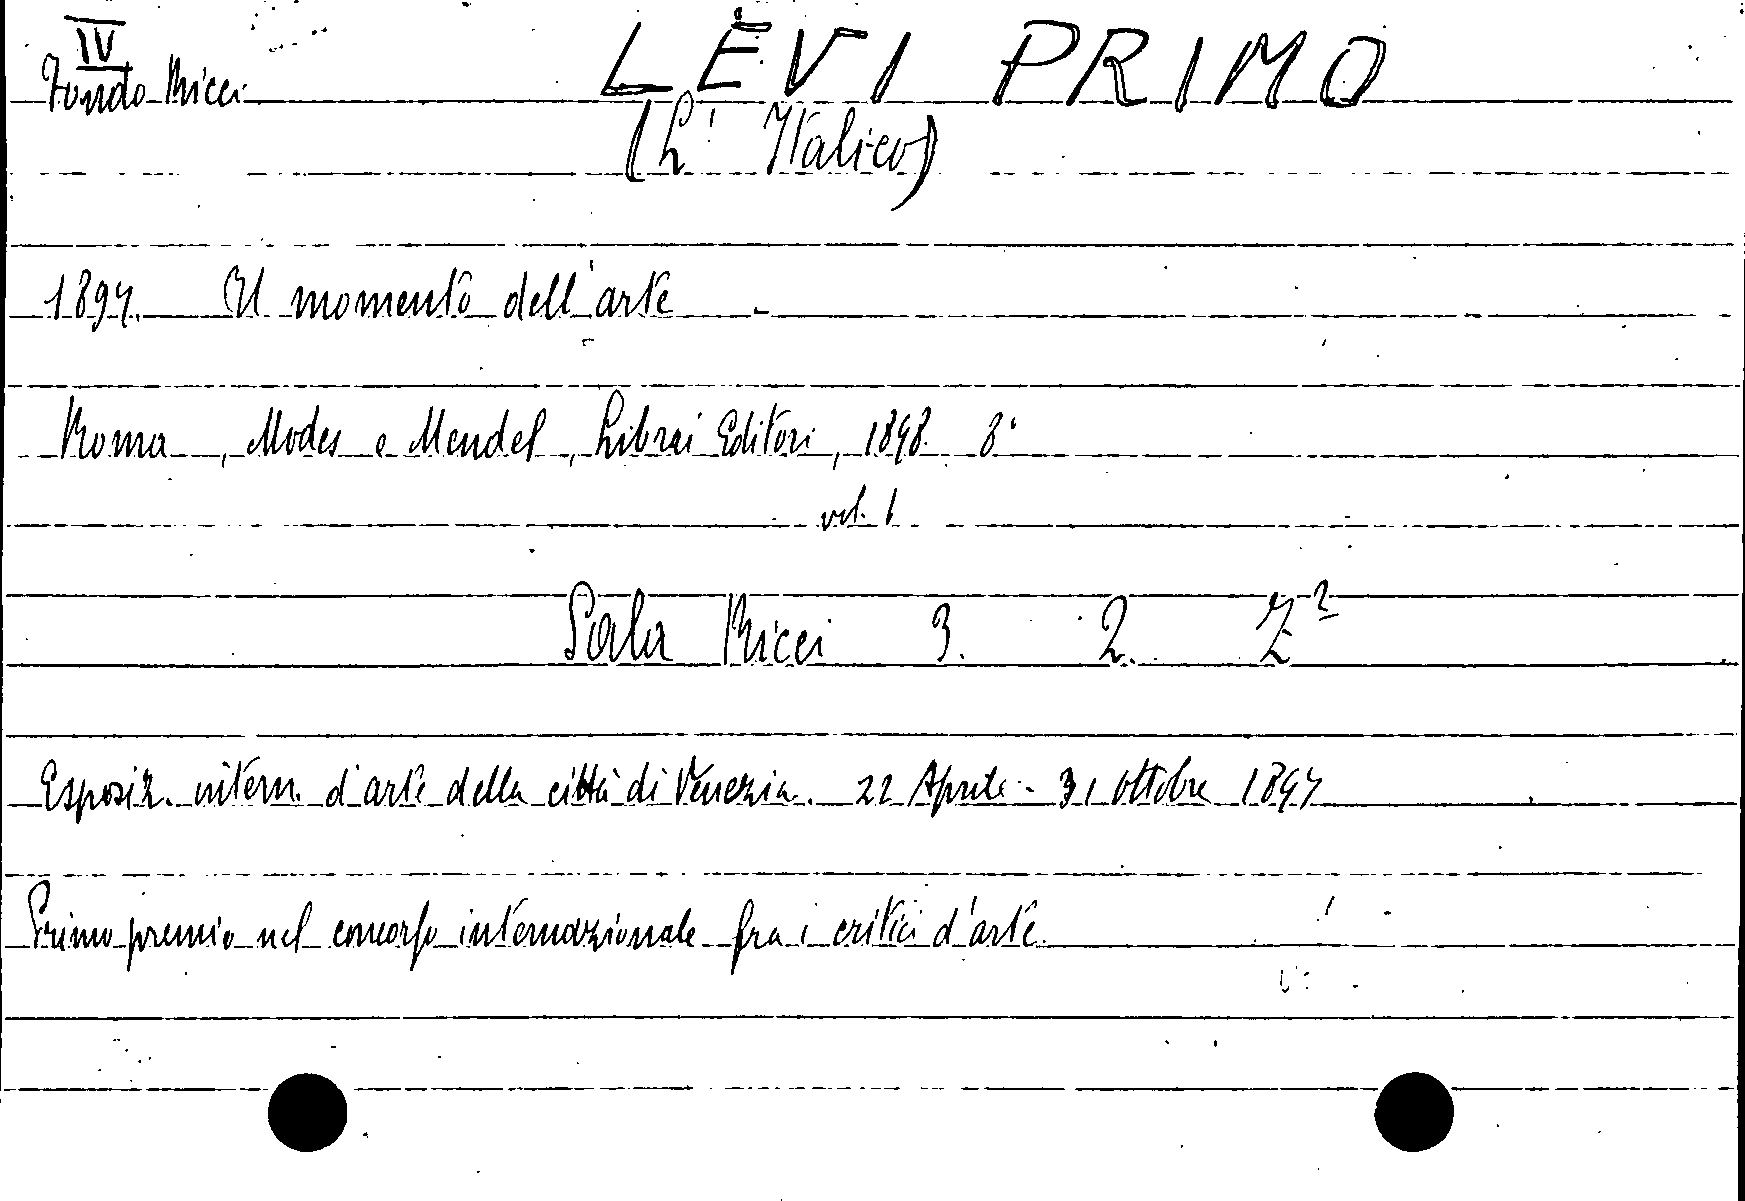 IV
Fondo Ricci
LEVI PRIMO
(L' Italico)
1897. Il momento dell'arte
Roma, Modes e Mendel, Librai Editori, 1898. 8°
vol. 1
Sala Ricci 3. 2. Z²
Esposiz. intern. d'arte della città di Venezia. 22 Aprile - 31 ottobre 1897
Primo premio nel concorso internazionale fra i critici d'arte.